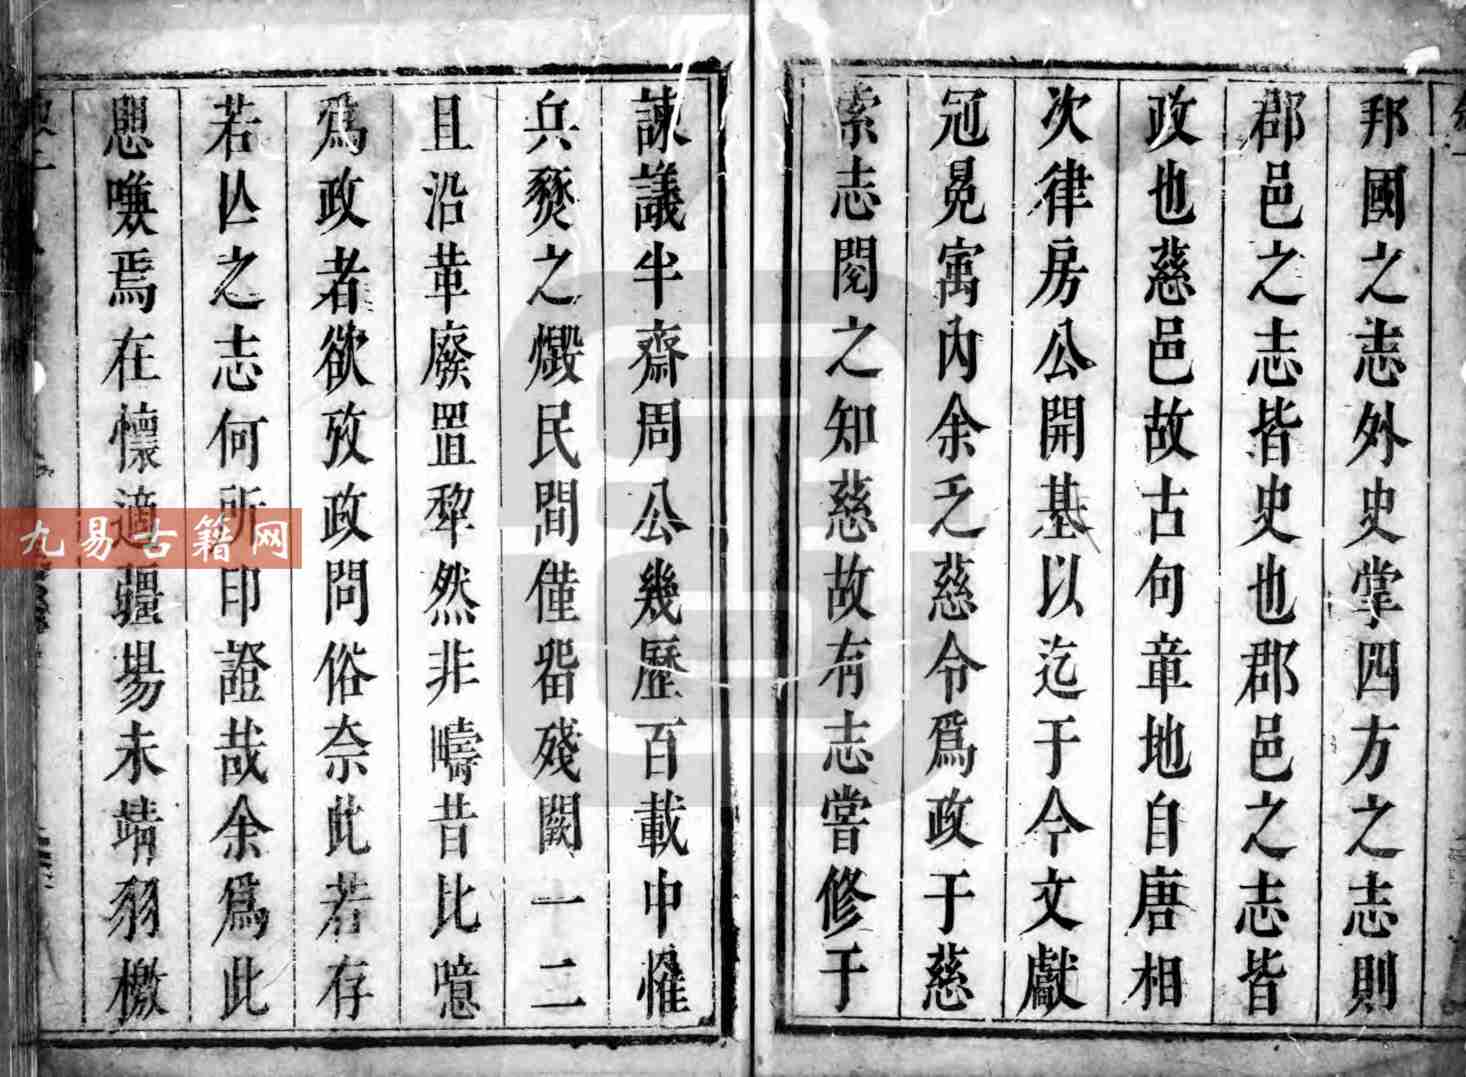 邦國之志外史掌四方之志則
郡邑之志皆史也郡邑之志皆
政也慈邑故古句章地自唐相
次律房公開基以迄于今文獻
冠冕寓內余乏慈令為政于慈
索志閱之知慈故有志嘗修于
諫議半齋周公幾歷百載中罹
兵燹之燬民間僅畱殘闕一二
且沿革廢置犂然非疇昔比噫
為政者欲攷政問俗奈此若存
若亾之志何所印證哉余為此
思喚焉在懷適疆場未靖羽檄
九易古籍网